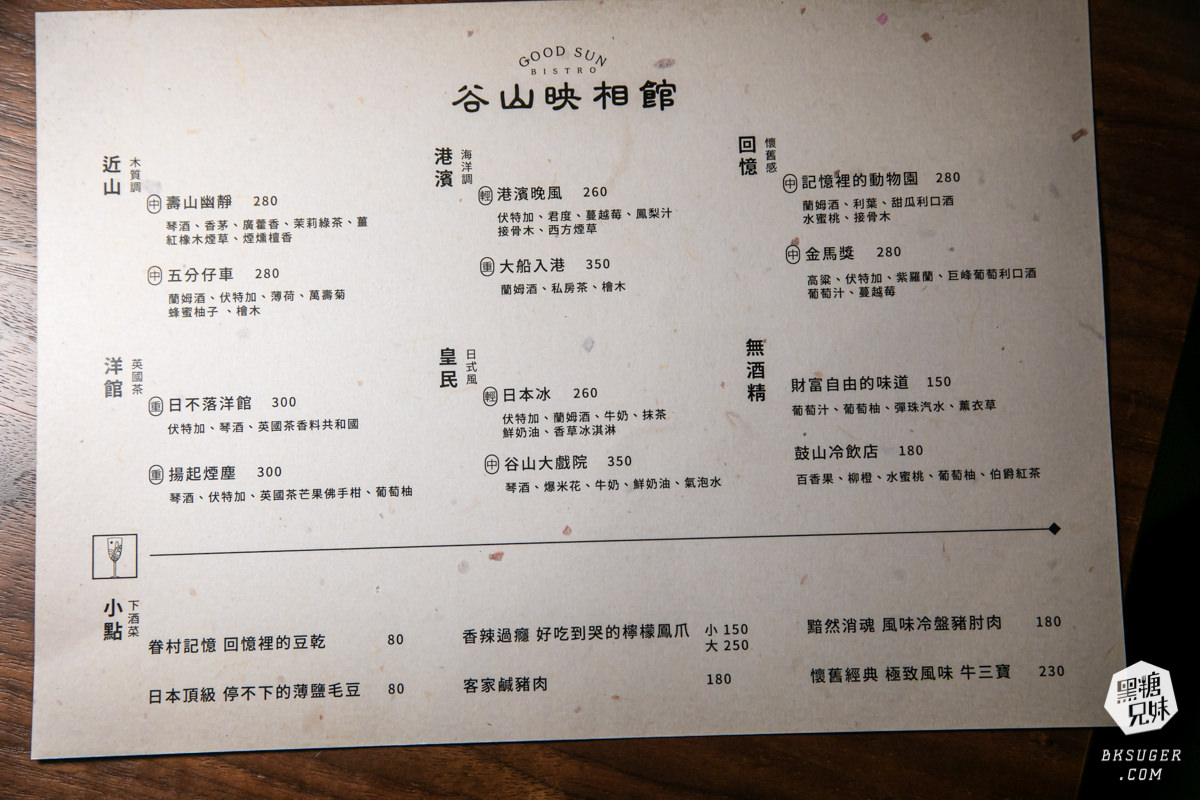 GOOD SUN
BISTRO
谷山映相館
近山
木質調
中 壽山幽靜 280
琴酒、香茅、廣藿香、茉莉綠茶、薑
紅橡木煙草、煙燻檀香
中 五分仔車 280
蘭姆酒、伏特加、薄荷、萬壽菊
蜂蜜柚子、檜木
港濱
海洋調
輕 港濱晚風 260
伏特加、君度、蔓越莓、鳳梨汁
接骨木、西方煙草
重 大船入港 350
蘭姆酒、私房茶、檜木
回憶
懷舊感
中 記憶裡的動物園 280
蘭姆酒、利葉、甜瓜利口酒
水蜜桃、接骨木
中 金馬獎 280
高粱、伏特加、紫羅蘭、巨峰葡萄利口酒
葡萄汁、蔓越莓
洋館
英國茶
重 日不落洋館 300
伏特加、琴酒、英國茶香料共和國
重 揚起煙塵 300
琴酒、伏特加、英國茶芒果佛手柑、葡萄柚
皇民
日式風
輕 日本冰 260
伏特加、蘭姆酒、牛奶、抹茶
鮮奶油、香草冰淇淋
中 谷山大戲院 350
琴酒、爆米花、牛奶、鮮奶油、氣泡水
無酒精
財富自由的味道 150
葡萄汁、葡萄柚、彈珠汽水、薰衣草
鼓山冷飲店 180
百香果、柳橙、水蜜桃、葡萄柚、伯爵紅茶
小點
下酒菜
眷村記憶 回憶裡的豆乾 80
日本頂級 停不下的薄鹽毛豆 80
香辣過癮 好吃到哭的檸檬鳳爪 小 150
大 250
客家鹹豬肉 180
黯然消魂 風味冷盤豬肘肉 180
懷舊經典 極致風味 牛三寶 230
黑糖
兄妹
BKSUGER
.COM